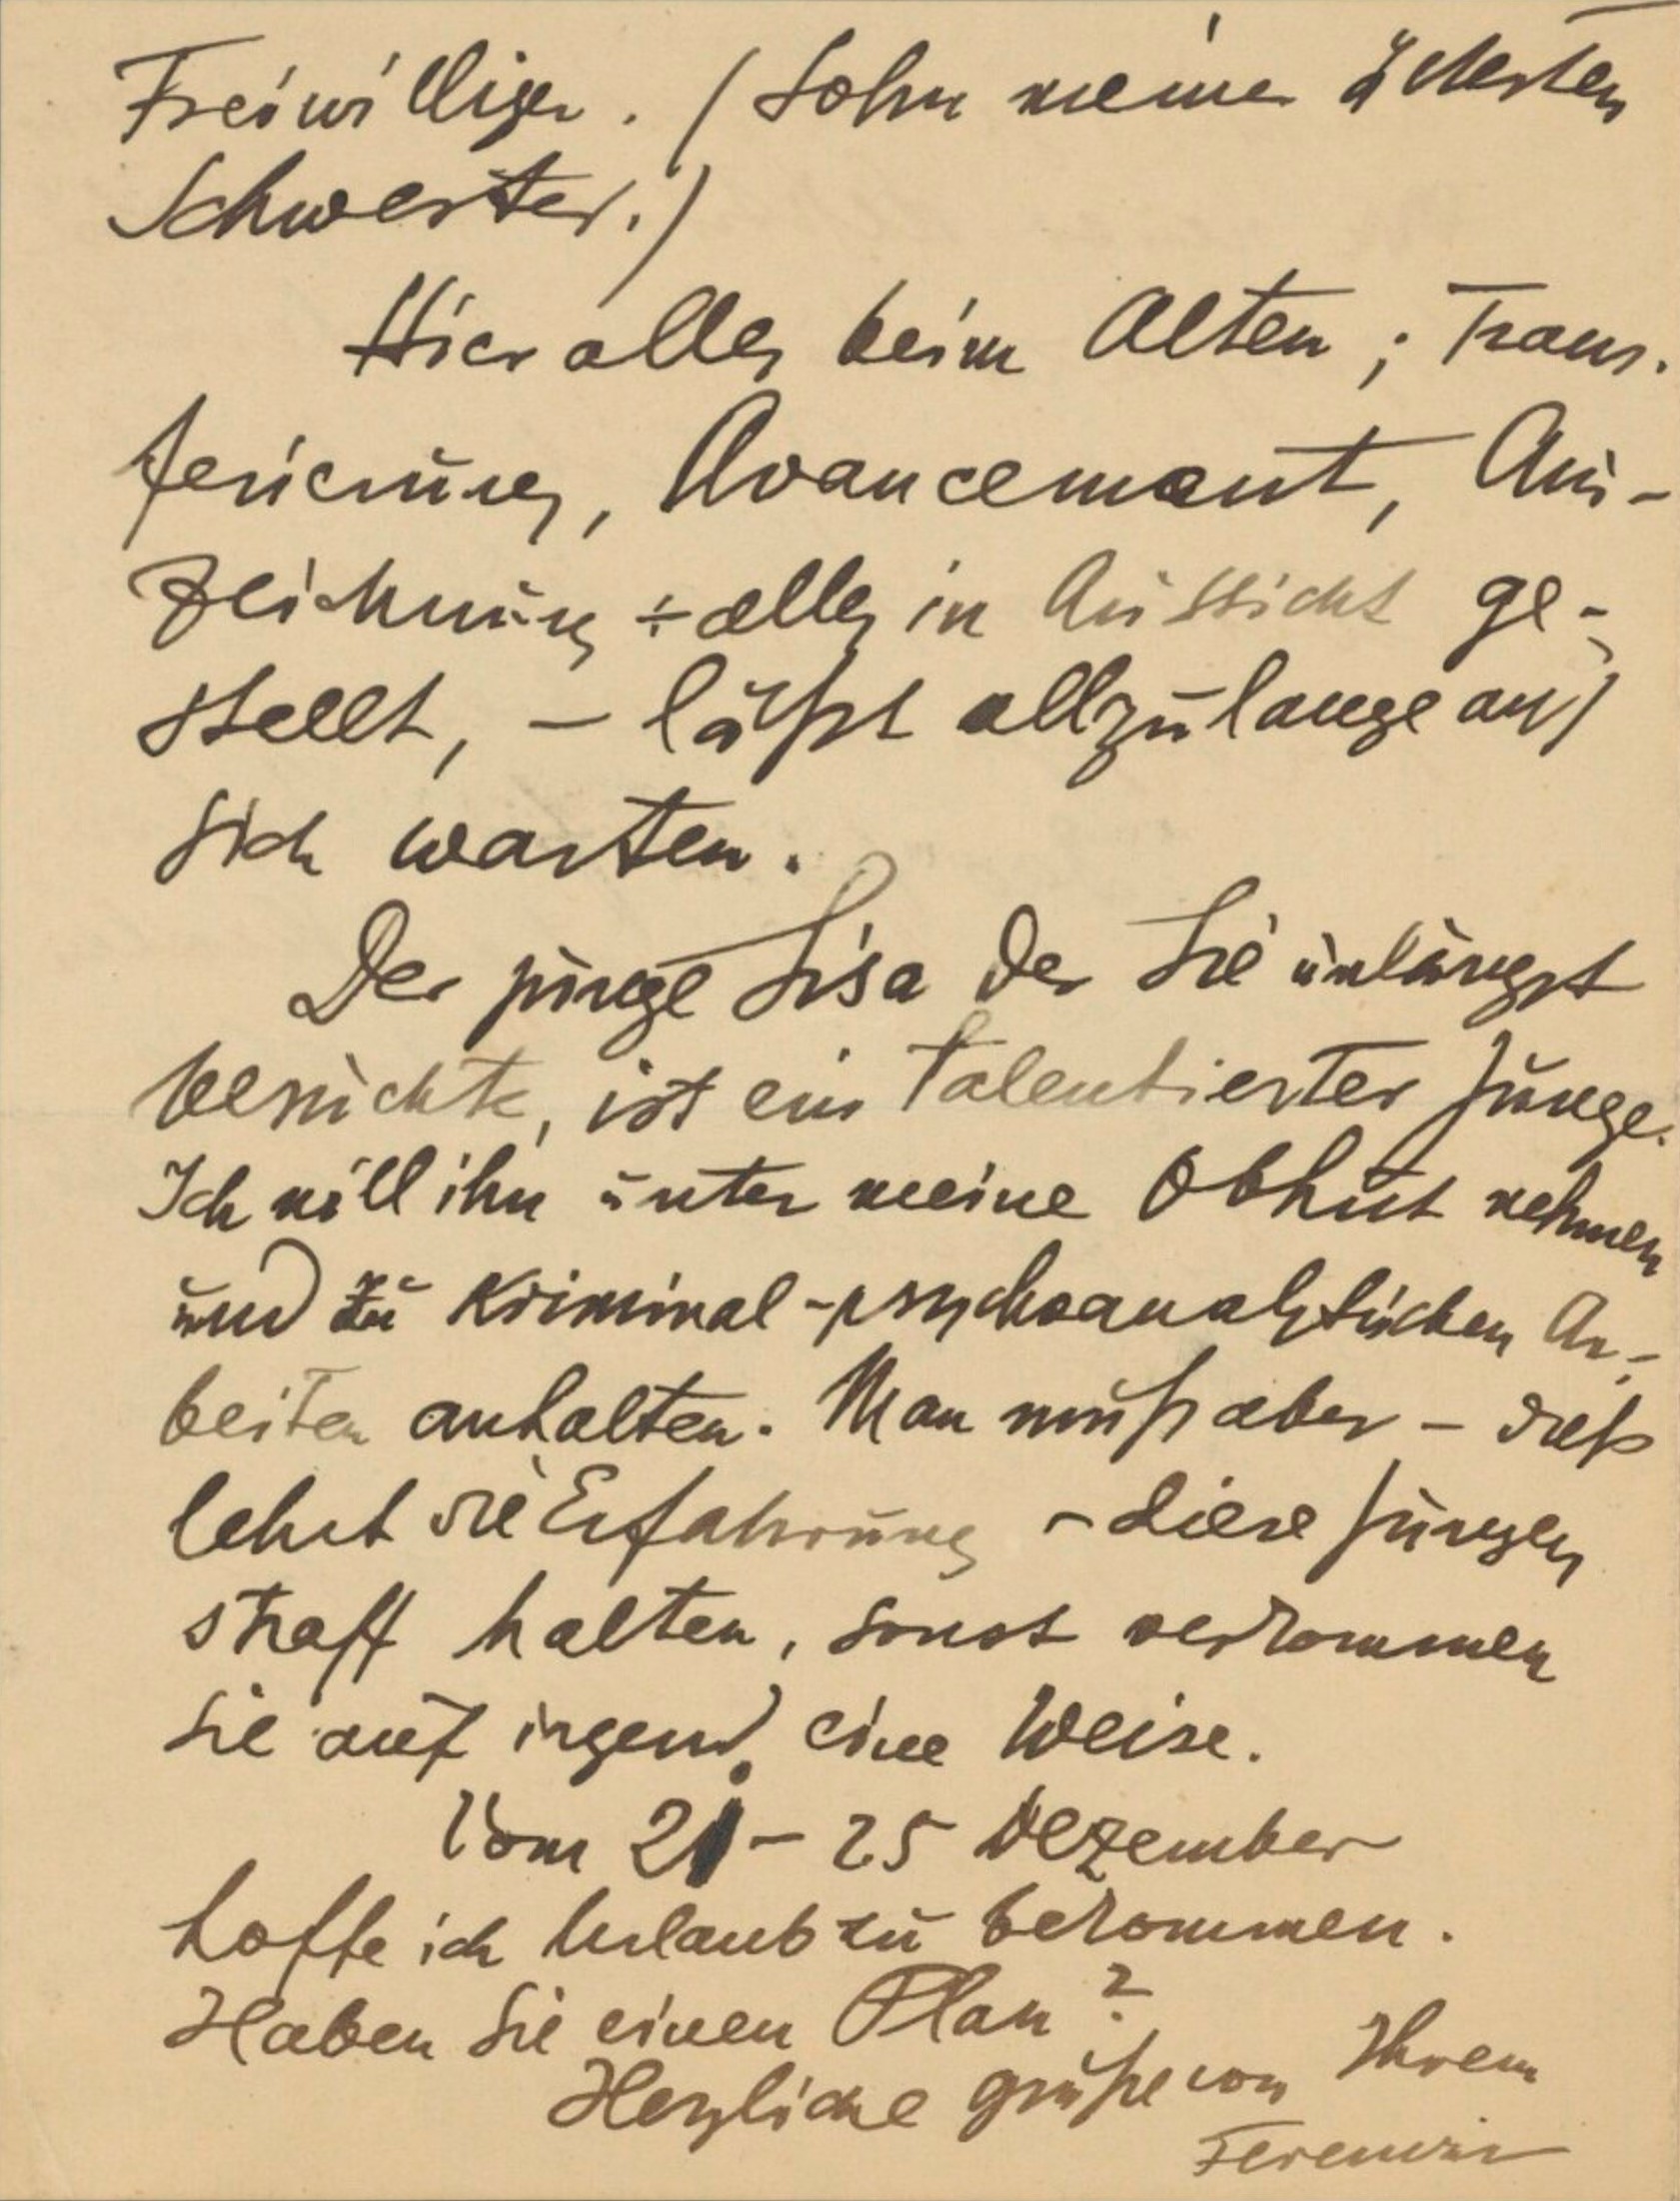 Freiwilliger. (Sohn meiner ältesten
Schwester.)
Hier alles beim Alten; Trans-
ferierung, Avancement, Aus-
zeichnung ÷ alles in Aussicht ge-
stellt, – läßt allzulange auf
sich warten.
Der junge Sisa der Sie unlängst
besuchte, ist ein talentierter Junge.
Ich will ihn unter meine Obhut nehmen
und zu Kriminal-psychoanalytischen Ar-
beiten anhalten. Man muß aber – dieß
lehrt die Erfahrung – diese Jungen
straff halten, sonst verkommen
sie auf irgend eine Weise.
Vom 21–25 Dezember
hoffe ich Urlaub zu bekommen.
Haben Sie einen Plan?
Herzliche Grüße von Ihrem
Ferenczi